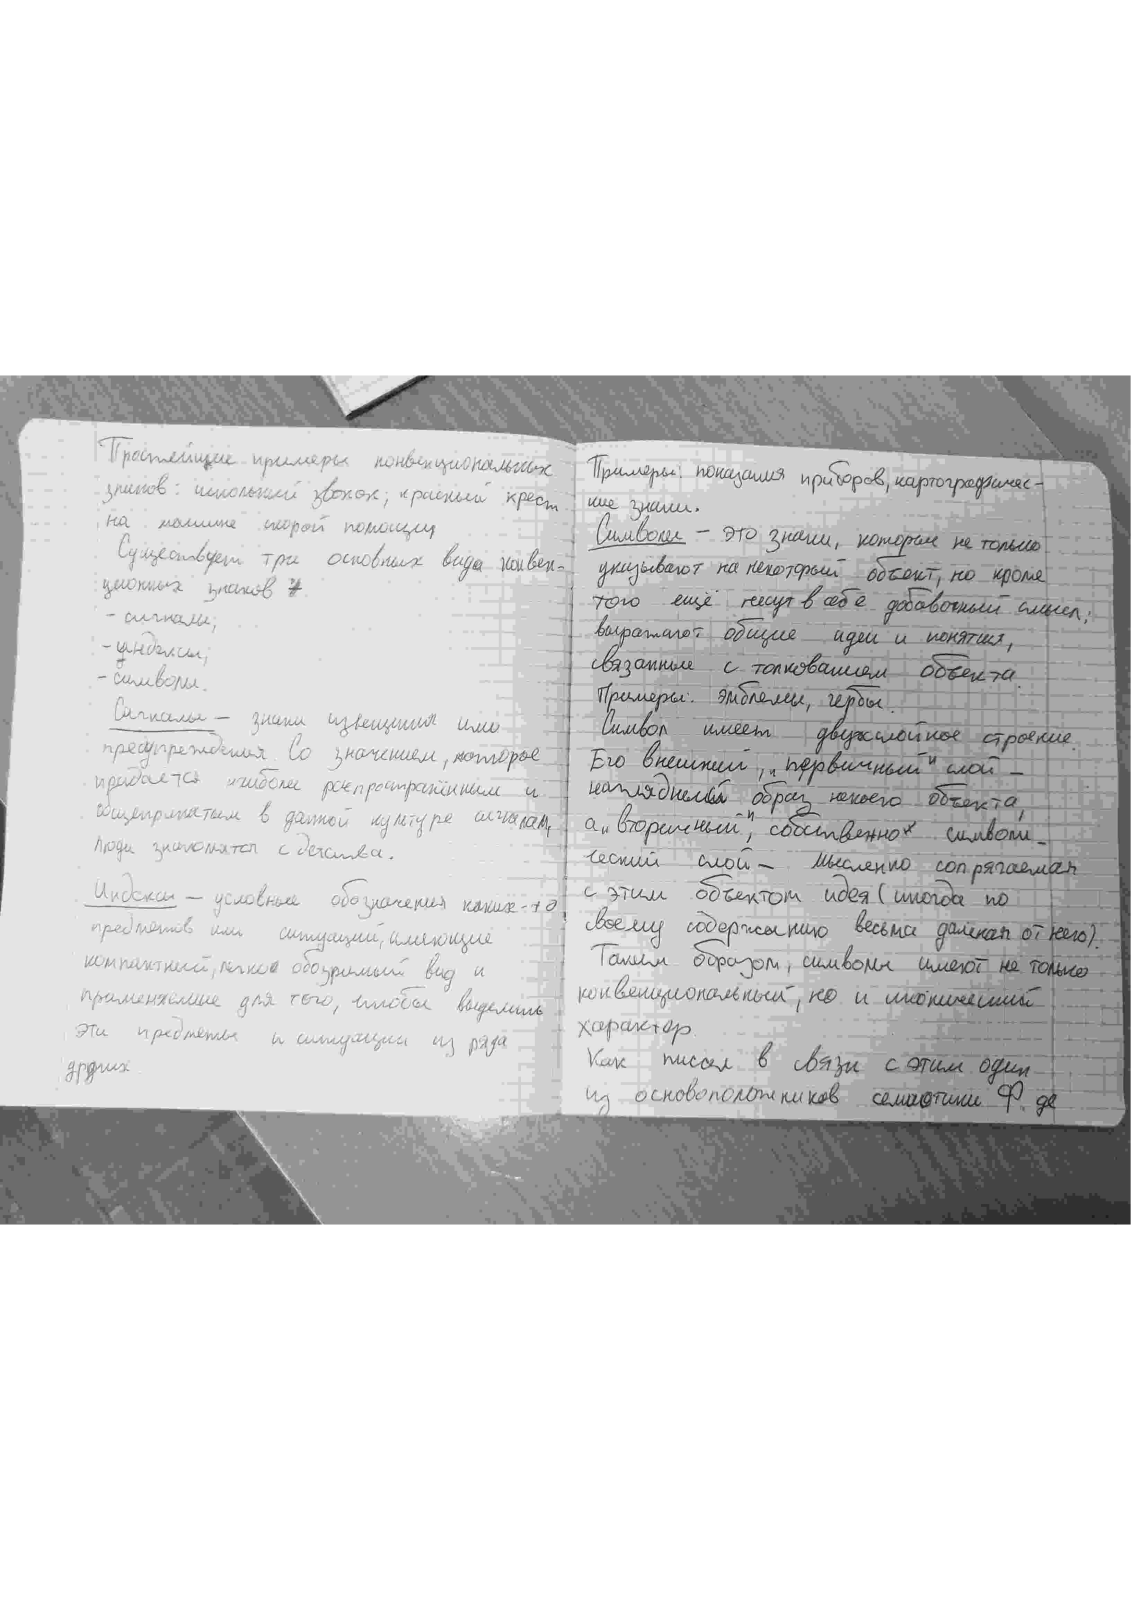 Простейшие примеры конвенциональных
знаков: школьный звонок; красный крест
на машине скорой помощи;
Существует три основных вида конвен-
ционных знаков
- сигналы;
- индексы;
- символы.
Сигналы – знаки извещения или
предупреждения. Со значением, которое
придается наиболее распространённым и
общепринятым в данной культуре сигналам,
люди знакомятся с детства.
Индексы – условные обозначения каких-то
предметов или ситуаций, имеющие
компактный, легко обозримый вид и
применяемые для того, чтобы выделить
эти предметы и ситуации из ряда
других.
Примеры: показания приборов, картографичес-
кие знаки.
Символы – это знаки, которые не только
указывают на некоторый объект, но кроме
того ещё несут в себе добавочный смысл;
выражают общие идеи и понятия,
связанные с толкованием объекта.
Примеры: эмблемы, гербы.
Символ имеет двухслойное строение.
Его внешний, „первичный" слой –
наглядный образ некоего объекта,
а „вторичный", собственно символи-
ческий слой – мысленно сопрягаемая
с этим объектом идея (иногда по
своему содержанию весьма далекая от него).
Таким образом, символы имеют не только
конвенциональный, но и иконический
характер.
Как писал в связи с этим один
из основоположников семиотики Ф. де